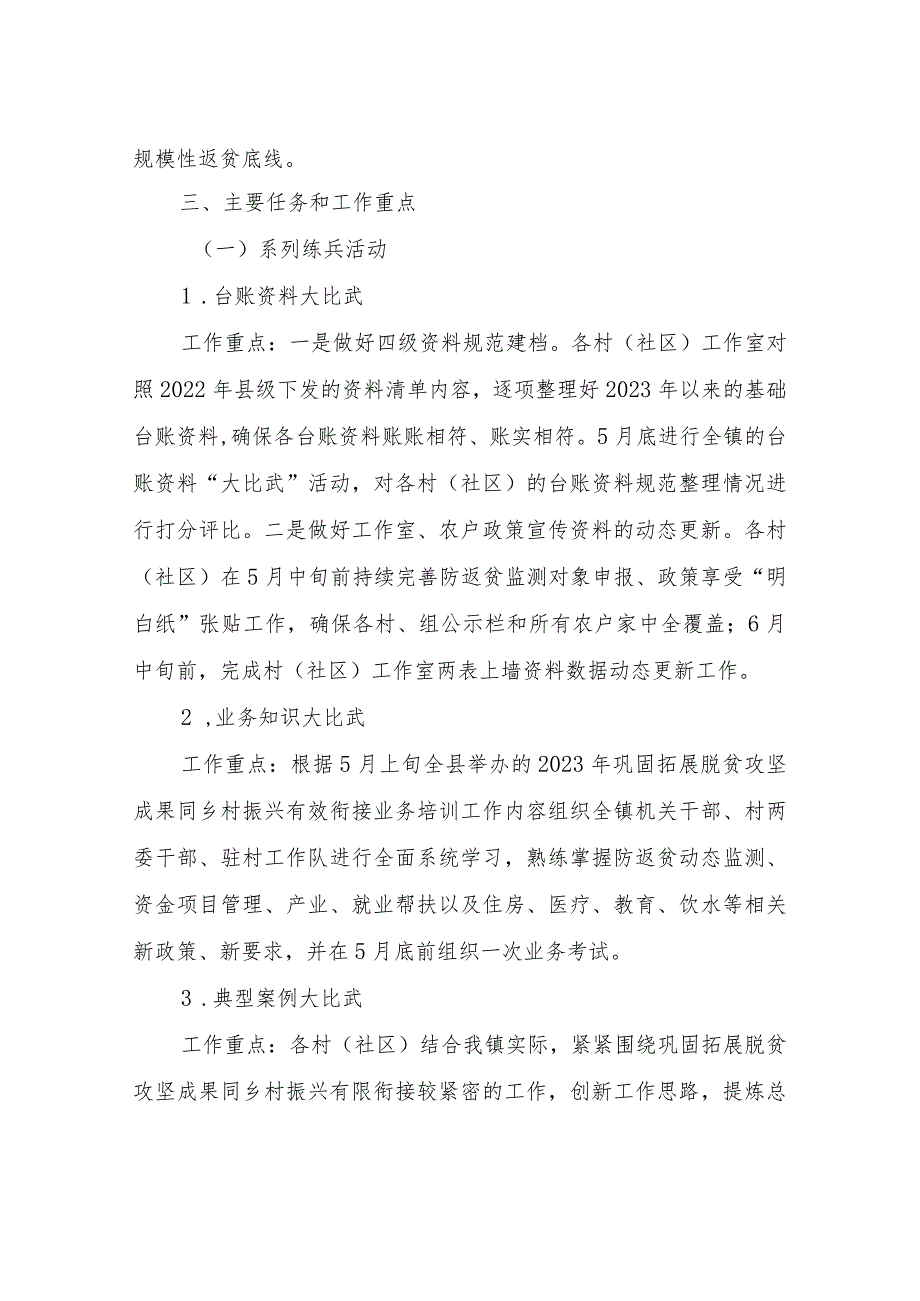 规模性返贫底线。
三、主要任务和工作重点
（一）系列练兵活动
1 .台账资料大比武
工作重点：一是做好四级资料规范建档。各村（社区）工作室对
照 2022 年县级下发的资料清单内容，逐项整理好 2023 年以来的基础
台账资料,确保各台账资料账账相符、账实相符。5 月底进行全镇的台
账资料“大比武”活动，对各村（社区）的台账资料规范整理情况进
行打分评比。二是做好工作室、农户政策宣传资料的动态更新。各村
（社区）在 5 月中旬前持续完善防返贫监测对象申报、政策享受“明
白纸”张贴工作，确保各村、组公示栏和所有农户家中全覆盖；6 月
中旬前，完成村（社区）工作室两表上墙资料数据动态更新工作。
2 ,业务知识大比武
工作重点：根据 5 月上旬全县举办的 2023 年巩固拓展脱贫攻坚
成果同乡村振兴有效衔接业务培训工作内容组织全镇机关干部、村两
委干部、驻村工作队进行全面系统学习，熟练掌握防返贫动态监测、
资金项目管理、产业、就业帮扶以及住房、医疗、教育、饮水等相关
新政策、新要求，并在 5 月底前组织一次业务考试。
3 .典型案例大比武
工作重点：各村（社区）结合我镇实际，紧紧围绕巩固拓展脱贫
攻坚成果同乡村振兴有限衔接较紧密的工作，创新工作思路，提炼总